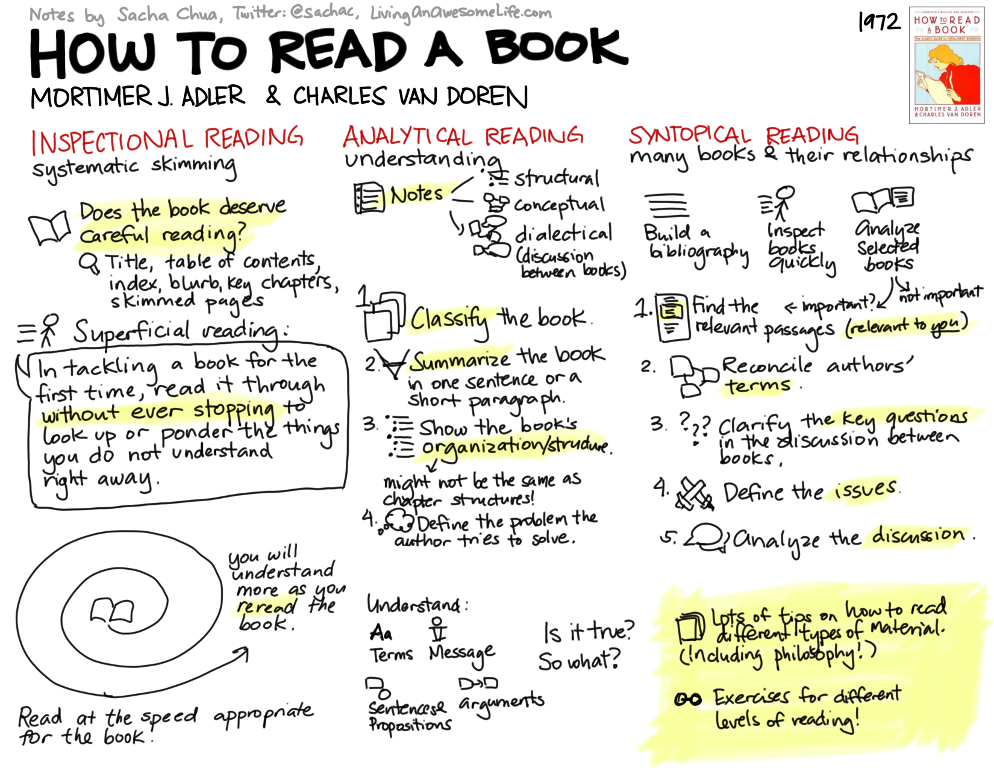 Notes by Sacha Chua, Twitter: @sachac, LivingAnAwesomeLife.com
HOW TO READ A BOOK
MORTIMER J. ADLER & CHARLES VAN DOREN
1972
HOW TO READ
A BOOK
MORTIMER J. ADLER
& CHARLES VAN DOREN
INSPECTIONAL READING
systematic skimming
Does the book deserve
careful reading?
Title, table of contents,
index, blurb, key chapters,
skimmed pages
Superficial reading:
In tackling a book for the
first time, read it through
without ever stopping to
look up or ponder the things
you do not understand
right away.
you will
understand
more as you
reread the
book.
Read at the speed appropriate
for the book!
ANALYTICAL READING
understanding
Notes
structural
conceptual
dialectical
(discussion
between books)
1. Classify the book.
2. Summarize the book
in one sentence or a
short paragraph.
3. Show the book's
organization/structure.
might not be the same as
chapter structures!
4. Define the problem the
author tries to solve.
Understand:
Aa
Terms Message
Sentences & arguments
Propositions
Is it true?
So what?
SYNTOPICAL READING
many books & their relationships
Build a
bibliography
Inspect
books
quickly
Analyze
selected
books
important?
not important
1. Find the
relevant passages (relevant to you)
2. Reconcile authors'
terms.
3. ??? Clarify the key questions
in the discussion between
books.
4. Define the issues.
5. Analyze the discussion.
Lots of tips on how to read
different types of material.
(Including philosophy!)
Exercises for different
levels of reading!